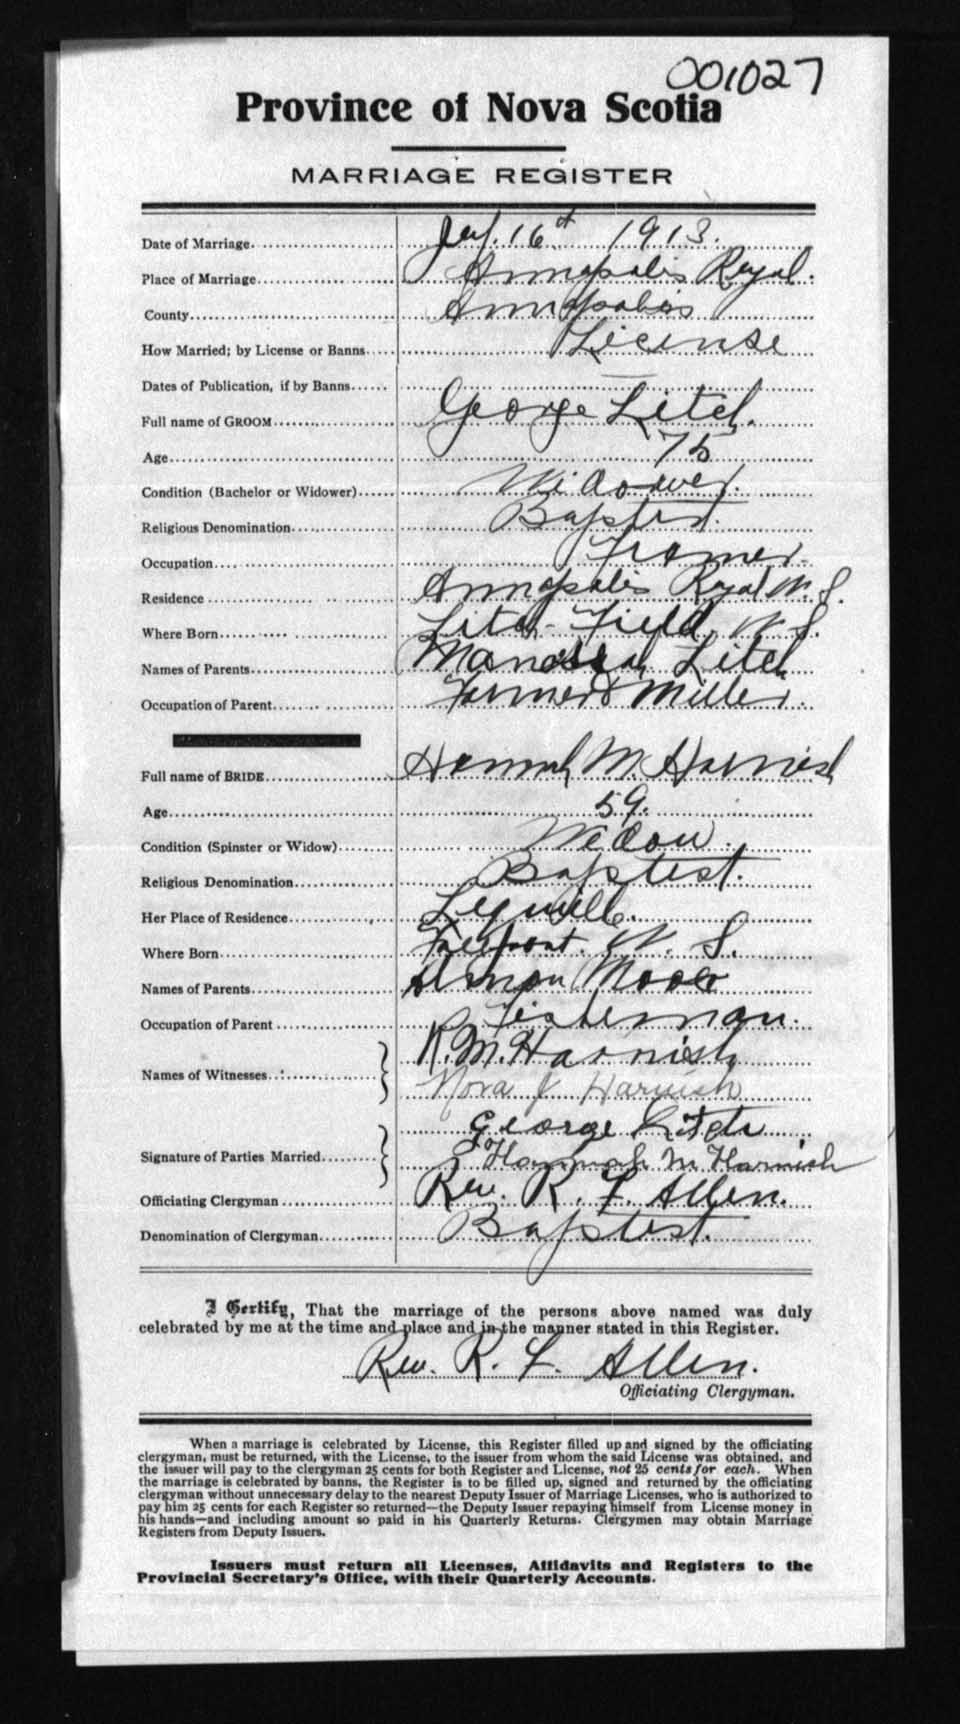 001027
Province of Nova Scotia
MARRIAGE REGISTER
Date of Marriage 16th 1913.
Place of Marriage Annapolis Royal.
County Annapolis
How Married; by License or Banns License
Dates of Publication, if by Banns
Full name of GROOM George Litch.
Age 75
Condition (Bachelor or Widower) Widower.
Religious Denomination Baptist.
Occupation Framer.
Residence Annapolis Royal N. S.
Where Born Litch-Field, N. S.
Names of Parents Manassah Litch
Occupation of Parent Farmer & Miller.
Full name of BRIDE Hannah M. Harnish
Age 59.
Condition (Spinster or Widow) Widow.
Religious Denomination Baptist.
Her Place of Residence Lequille.
Where Born N. S.
Names of Parents
Occupation of Parent Fisherman.
Names of Witnesses R. M. Harnish
Nora J Harnish
George Litch
Signature of Parties Married Hannah M. Harnish
Officiating Clergyman Rev. R. F. Allen.
Denomination of Clergyman Baptist.
I Certify, That the marriage of the persons above named was duly
celebrated by me at the time and place and in the manner stated in this Register.
Rev. R. F. Allen.
Officiating Clergyman.
When a marriage is celebrated by License, this Register filled up and signed by the officiating
clergyman, must be returned, with the License, to the issuer from whom the said License was obtained, and
the issuer will pay to the clergyman 25 cents for both Register and License, not 25 cents for each. When
the marriage is celebrated by banns, the Register is to be filled up, signed and returned by the officiating
clergyman without unnecessary delay to the nearest Deputy Issuer of Marriage Licenses, who is authorized to
pay him 25 cents for each Register so returned—the Deputy Issuer repaying himself from License money in
his hands—and including amount so paid in his Quarterly Returns. Clergymen may obtain Marriage
Registers from Deputy Issuers.
Issuers must return all Licenses, Affidavits and Registers to the
Provincial Secretary's Office, with their Quarterly Accounts.